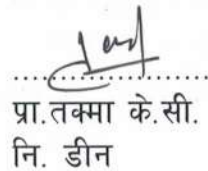 प्रा.तक्मा के.सी.
नि. डीन